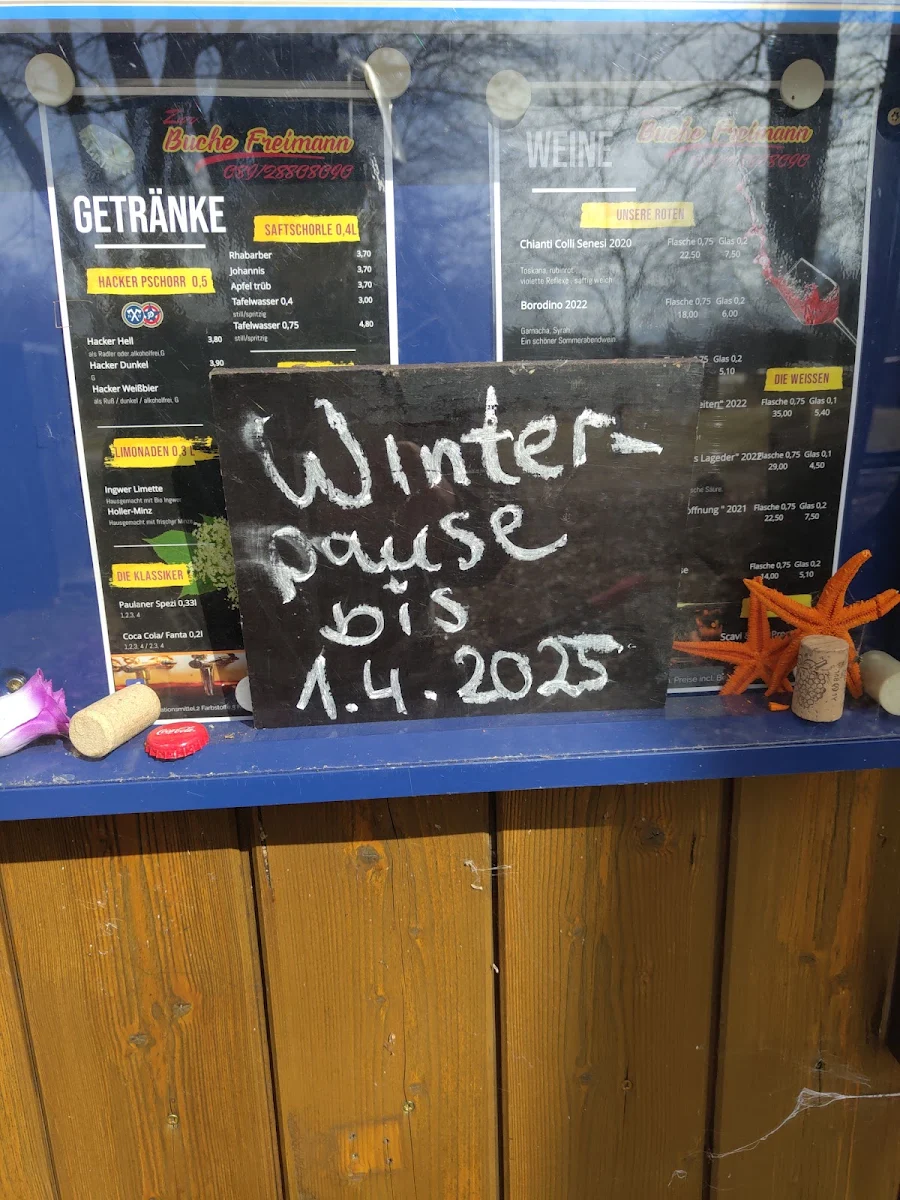 Zur
Buche Freimann
089/28808090
GETRÄNKE
HACKER PSCHORR 0,5
Hacker Hell 3,80
als Radler oder alkoholfrei,G
Hacker Dunkel 3,90
G
Hacker Weißbier
als Ruß / dunkel / alkoholfrei, G
LIMONADEN 0,3 L
Ingwer Limette
Hausgemacht mit Bio Ingwer
Holler-Minz
Hausgemacht mit frischer Minze
DIE KLASSIKER
Paulaner Spezi 0,33l
1,2,3, 4
Coca Cola/ Fanta 0,2l
1,2,3, 4 / 2,3, 4
SAFTSCHORLE 0,4L
Rhabarber 3,70
Johannis 3,70
Apfel trüb 3,70
Tafelwasser 0,4 3,00
still/spritzig
Tafelwasser 0,75 4,80
still/spritzig
WEINE
Buche Freimann
089/28808090
UNSERE ROTEN
Chianti Colli Senesi 2020 Flasche 0,75 Glas 0,2
22,50 7,50
Toskana, rubinrot
violette Reflexe, saftig weich
Borodino 2022 Flasche 0,75 Glas 0,2
18,00 6,00
Garnacha, Syrah,
Ein schöner Sommerabendwein
,75 Glas 0,2
5,10
DIE WEISSEN
eiten" 2022 Flasche 0,75 Glas 0,1
35,00 5,40
s Lageder" 2022 Flasche 0,75 Glas 0,2
29,00 4,50
sche Säure
öffnung " 2021 Flasche 0,75 Glas 0,2
22,50 7,50
se Flasche 0,75 Glas 0,2
14,00 5,10
Scavi
Preise incl.
Winter-
pause
bis
1.4.2025
Coca-Cola